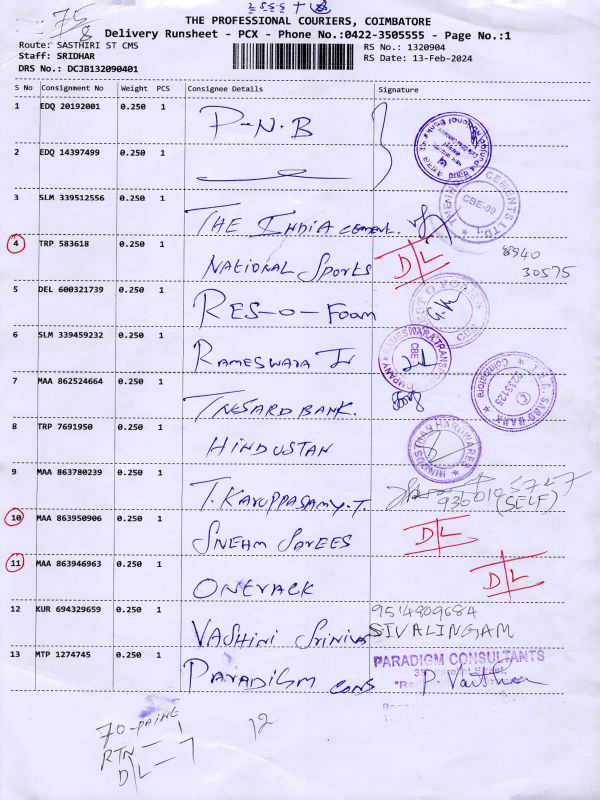 75
8
THE PROFESSIONAL COURIERS, COIMBATORE
Delivery Runsheet - PCX - Phone No.:0422-3505555 - Page No.:1
Route: SASTHIRI ST CMS
RS No.: 1320904
Staff: SRIDHAR
RS Date: 13-Feb-2024
DRS No.: DCJB132090401
S No Consignment No Weight PCS Consignee Details Signature
1 EDQ 20192001 0.250 1 P-N.B
2 EDQ 14397499 0.250 1
3 SLM 339512556 0.250 1 THE INDIA cement.
CBE-09
4 TRP 583618 0.250 1 NATIONAL Sports D/L 8940
30575
5 DEL 600321739 0.250 1 RES-O-Foam
6 SLM 339459232 0.250 1 RAMESWARA Tr
CBE
7 MAA 862524664 0.250 1 TNESARD BANK.
2333125
8 TRP 7691950 0.250 1 HINDUSTAN
HINDUSTHAN HARDWARES
9 MAA 863780239 0.250 1 T. KARUPPASAMY.T.
(SELF)
10 MAA 863950906 0.250 1 SNEHM SAREES D/L
11 MAA 863946963 0.250 1 ONETRACK D/L
12 KUR 694329659 0.250 1 VASHINI SRINIVAS 9514809684
SIVALINGAM
13 MTP 1274745 0.250 1 PARADIGM CONS PARADIGM CONSULTANTS
70-
RTN - 1
D/L - 7
12